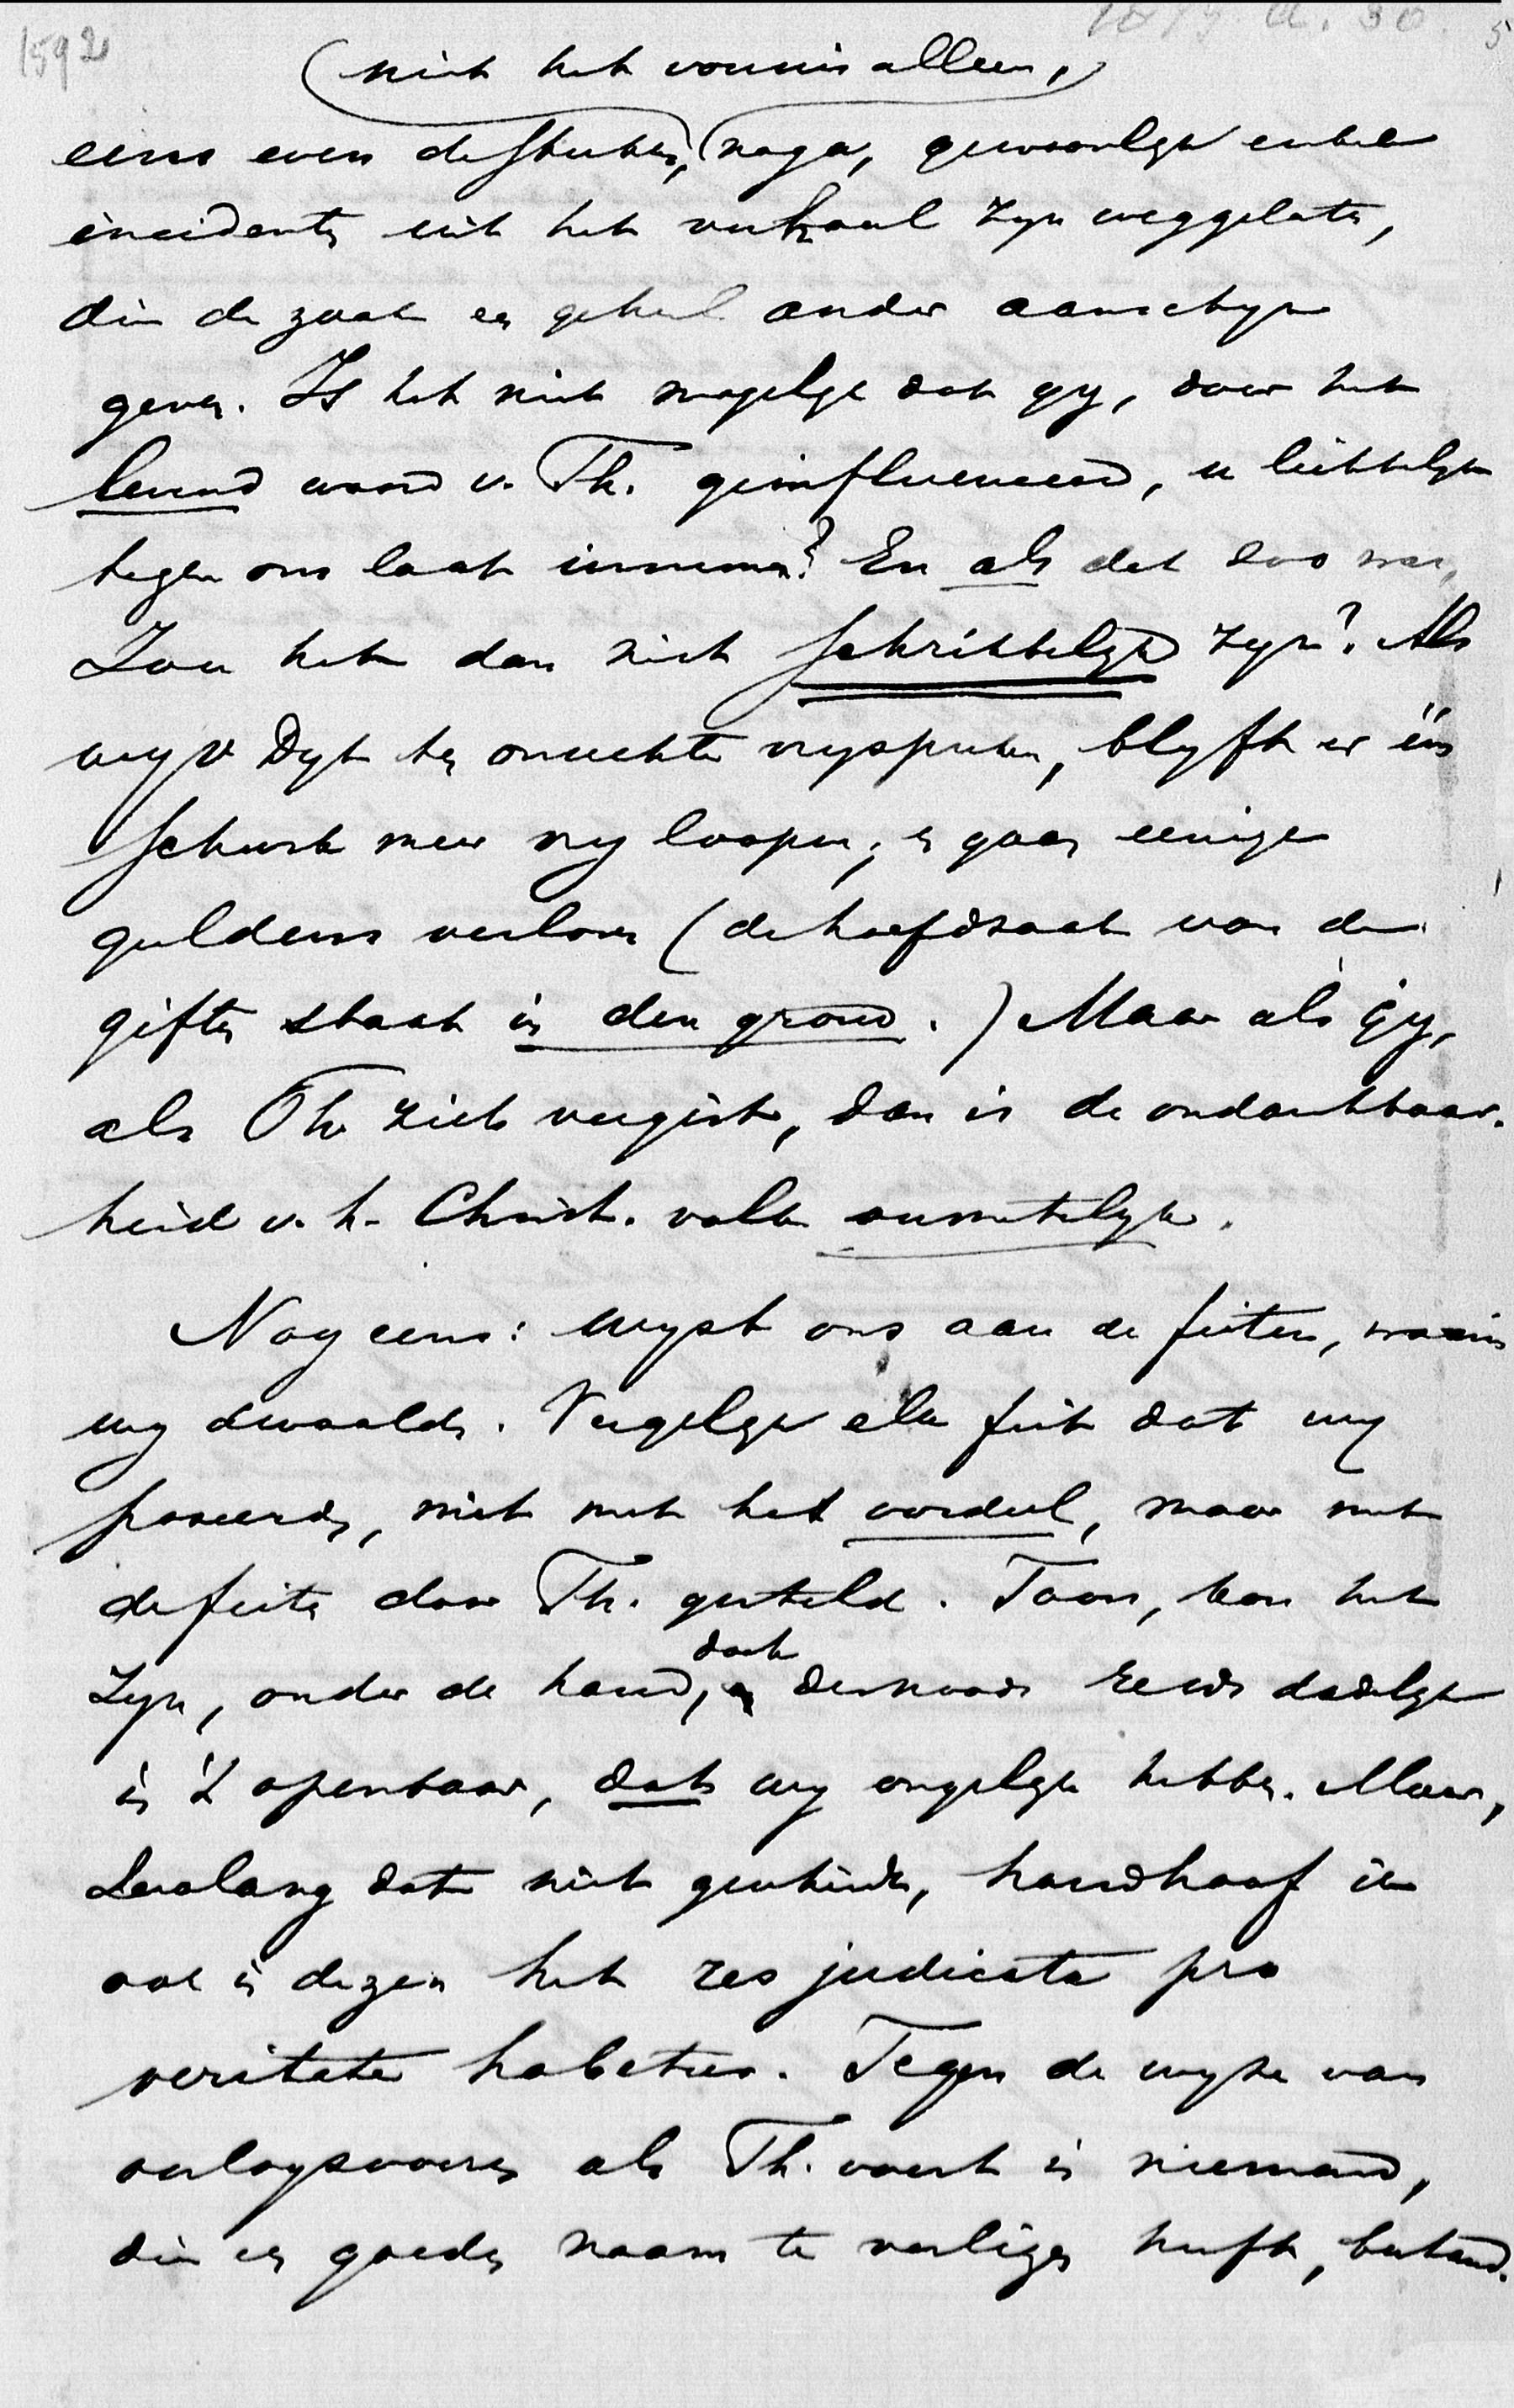 1592
5
(niet het vonnis alleen,)
eens even de stukken, naga, gewoonlyk enkele
incidenten uit het verhaal zyn weggelaten,
die de zaak een geheel ander aanschyn
geven. Is het niet mogelyk dat gy, door het
levend woord v. Th. geinfluenceerd, u lichtelyk
tegen ons laat innemen? En als dat zoo ware,
Zou het dan niet schrikkelyk zyn? Als
wy v Dyk ten onrechte vryspraken, blyft er één
schurk meer vry loopen; en gaan eenige
guldens verloren (de hoofdzaak van de
giften staat in den grond.) Maar als gy,
als Th zich vergist, dan is de ondankbaar-
heid v. h. Christ. volk onmetelyk.
Nog eens: wyst ons aan de feiten, waarin
wy dwaalden. Vergelyk elk feit dat wy
poseerden, niet met het oordeel, maar met
de feiten door Th. gesteld. Toon, kan het
zyn, onder de hand, doch desnoods reeds dadelyk
in 't openbaar, dat wy ongelyk hebben. Maar,
zoolang dat niet geschiedt, handhaaf ik
ook in dezen het res judicata pro
veritate habetur. Tegen de wyze van
oorlogsvoeren als Th. voert is niemand,
die een goeden naam te verliezen heeft, bestand.